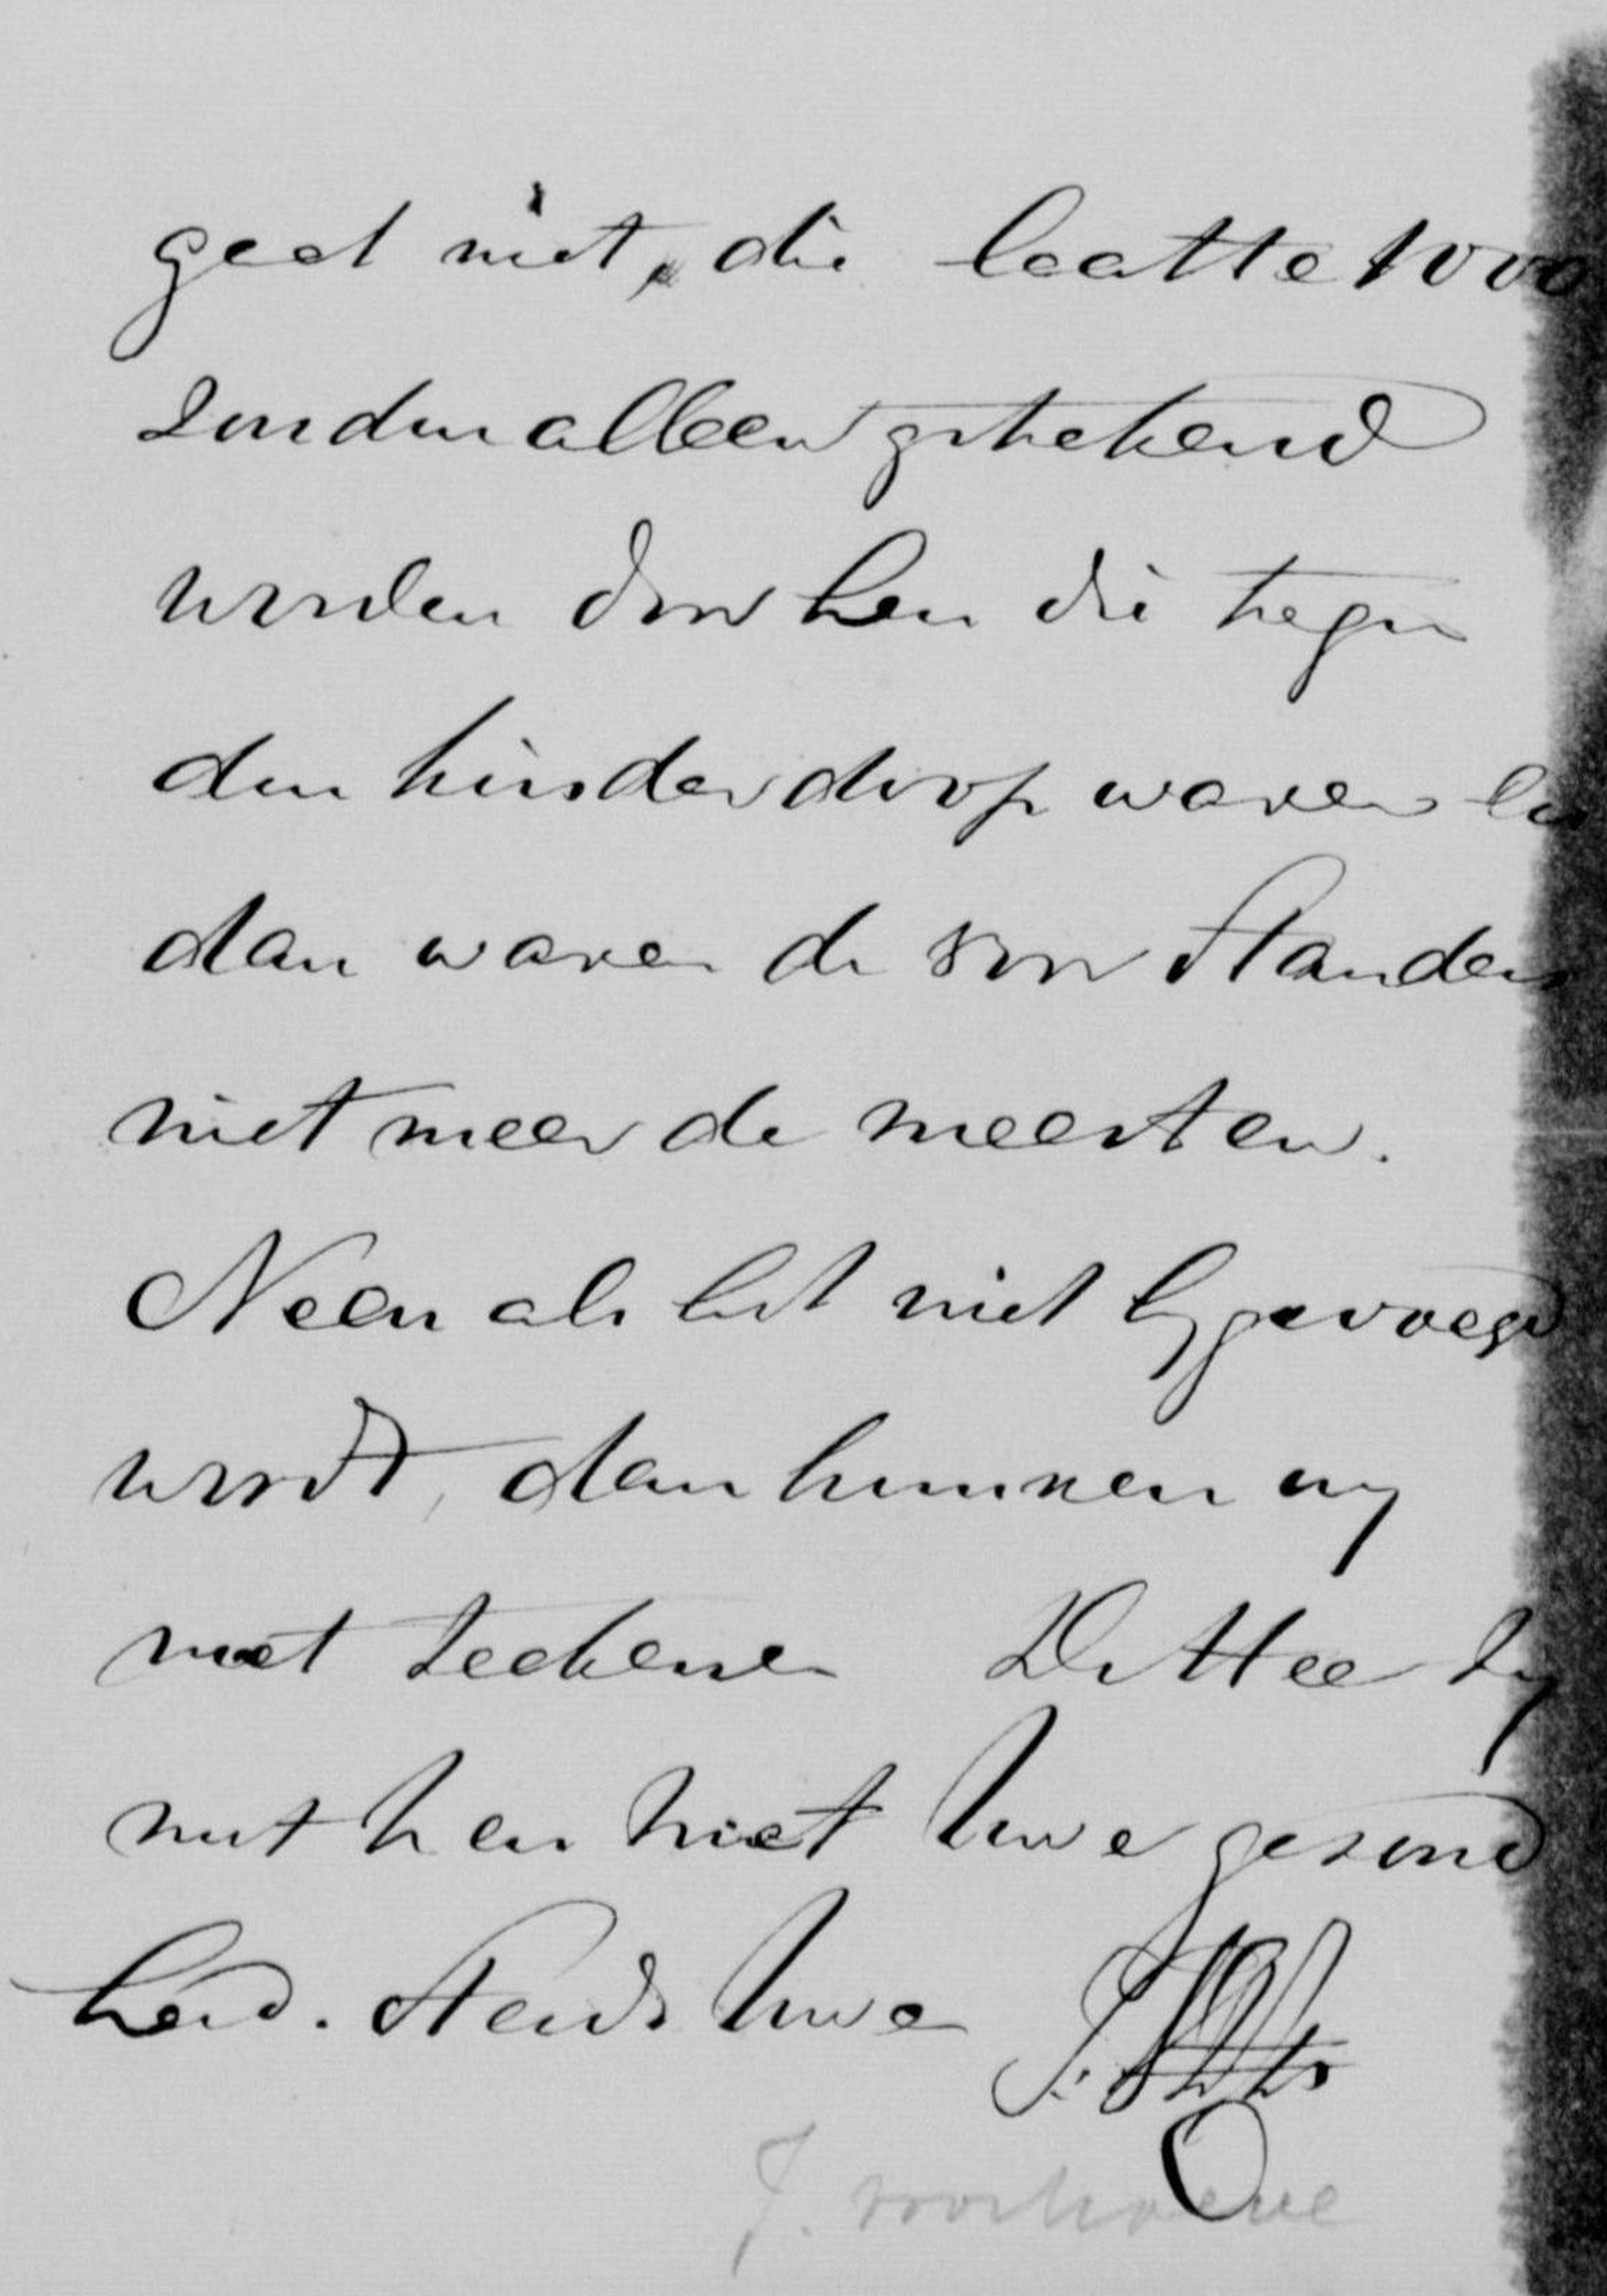 gaat niet, die laatste 1000
zouden alleen getekend
worden door hen die tegen
den kinderdoop waren en
dan waren de voorstanders
niet meer de meesten.
Neen als het niet bijgevoegd
wordt, dan kunnen wij
niet teekenen
met hen niet Uwe gezond
heid. Steeds Uwe
J. voorhoeve